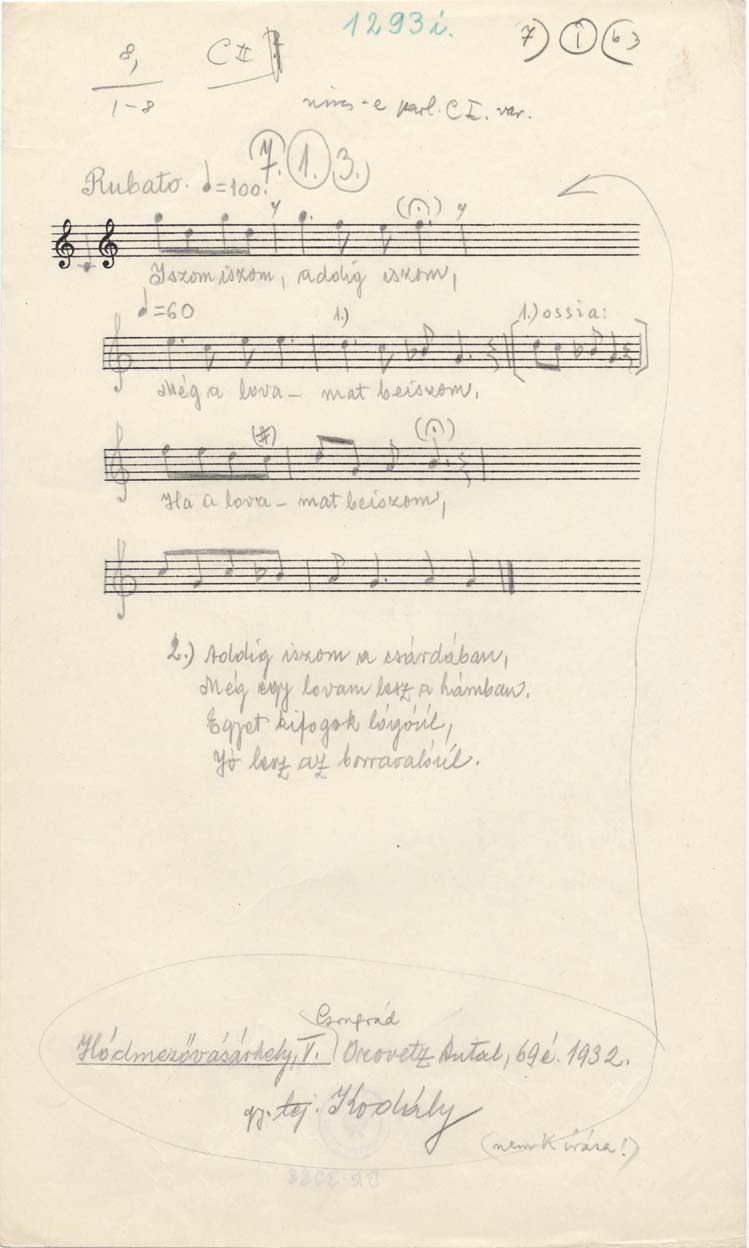 1293i.
8, C II 7) i (b3
1-8
nincs-e parl. C I. var.
7. 1. 3.
Rubato. =100.
Iszom iszom, addig iszom,
=60 1.) 1.) ossia:
Még a lova- mat beiszom,
(#)
Ha a lova- mat beiszom,
2.) Addig iszom a csárdában,
Még egy lovam lesz a hámban.
Egyet kifogok lógóúl,
Jó lesz az borravalóúl.
Csongrád
Hódmezővásárhely, T. Orovetz Antal, 69 é. 1932.
gy. Kodály
(nem K írása!)